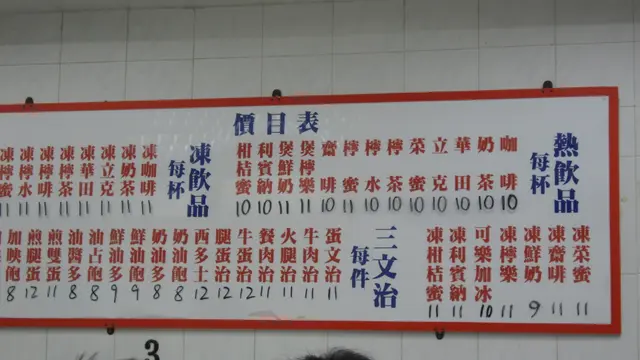 價目表
熱飲品
每杯
咖啡 10
奶茶 10
華田 10
立克 10
菜蜜 10
檸茶 10
檸水 10
檸蜜 11
齋啡 10
煲檸樂 11
煲鮮奶 11
利賓納 10
柑桔蜜 10
凍飲品
每杯
凍咖啡 11
凍奶茶 11
凍立克 11
凍華田 11
凍檸茶 11
凍檸啡 11
凍檸水 11
凍檸蜜 11
凍菜蜜 11
凍齋啡 11
凍鮮奶 9
凍檸樂 11
可樂加冰 10
凍利賓納 11
凍柑桔蜜 11
三文治
每件
蛋文治 11
牛肉治 11
火腿治 11
餐肉治 11
牛蛋治 12
腿蛋治 12
西多士 12
奶油飽 8
奶油多 8
鮮油飽 9
鮮油多 9
油占飽 8
油醬多 8
煎雙蛋 11
煎腿蛋 12
加映飽 8
3